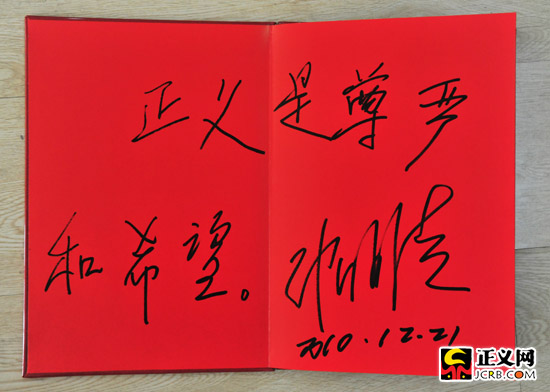 正义是尊严
和希望。
2010.12.21
正义网
JCRB.COM